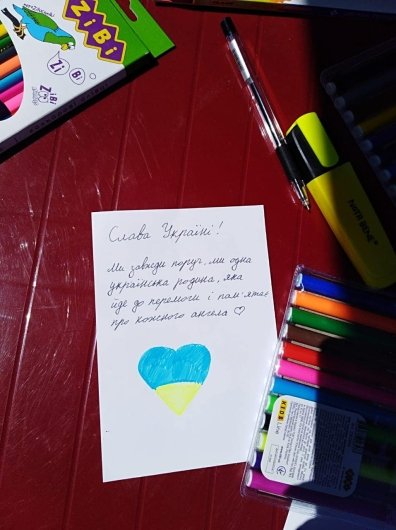 ZiBi
Zi
Bi
ZiBi
Слава Україні!
Ми завжди поруч, ми одна
українська родина, яка
йде до перемоги і пам'ятає
про кожного ангела ♡
KIDS Line